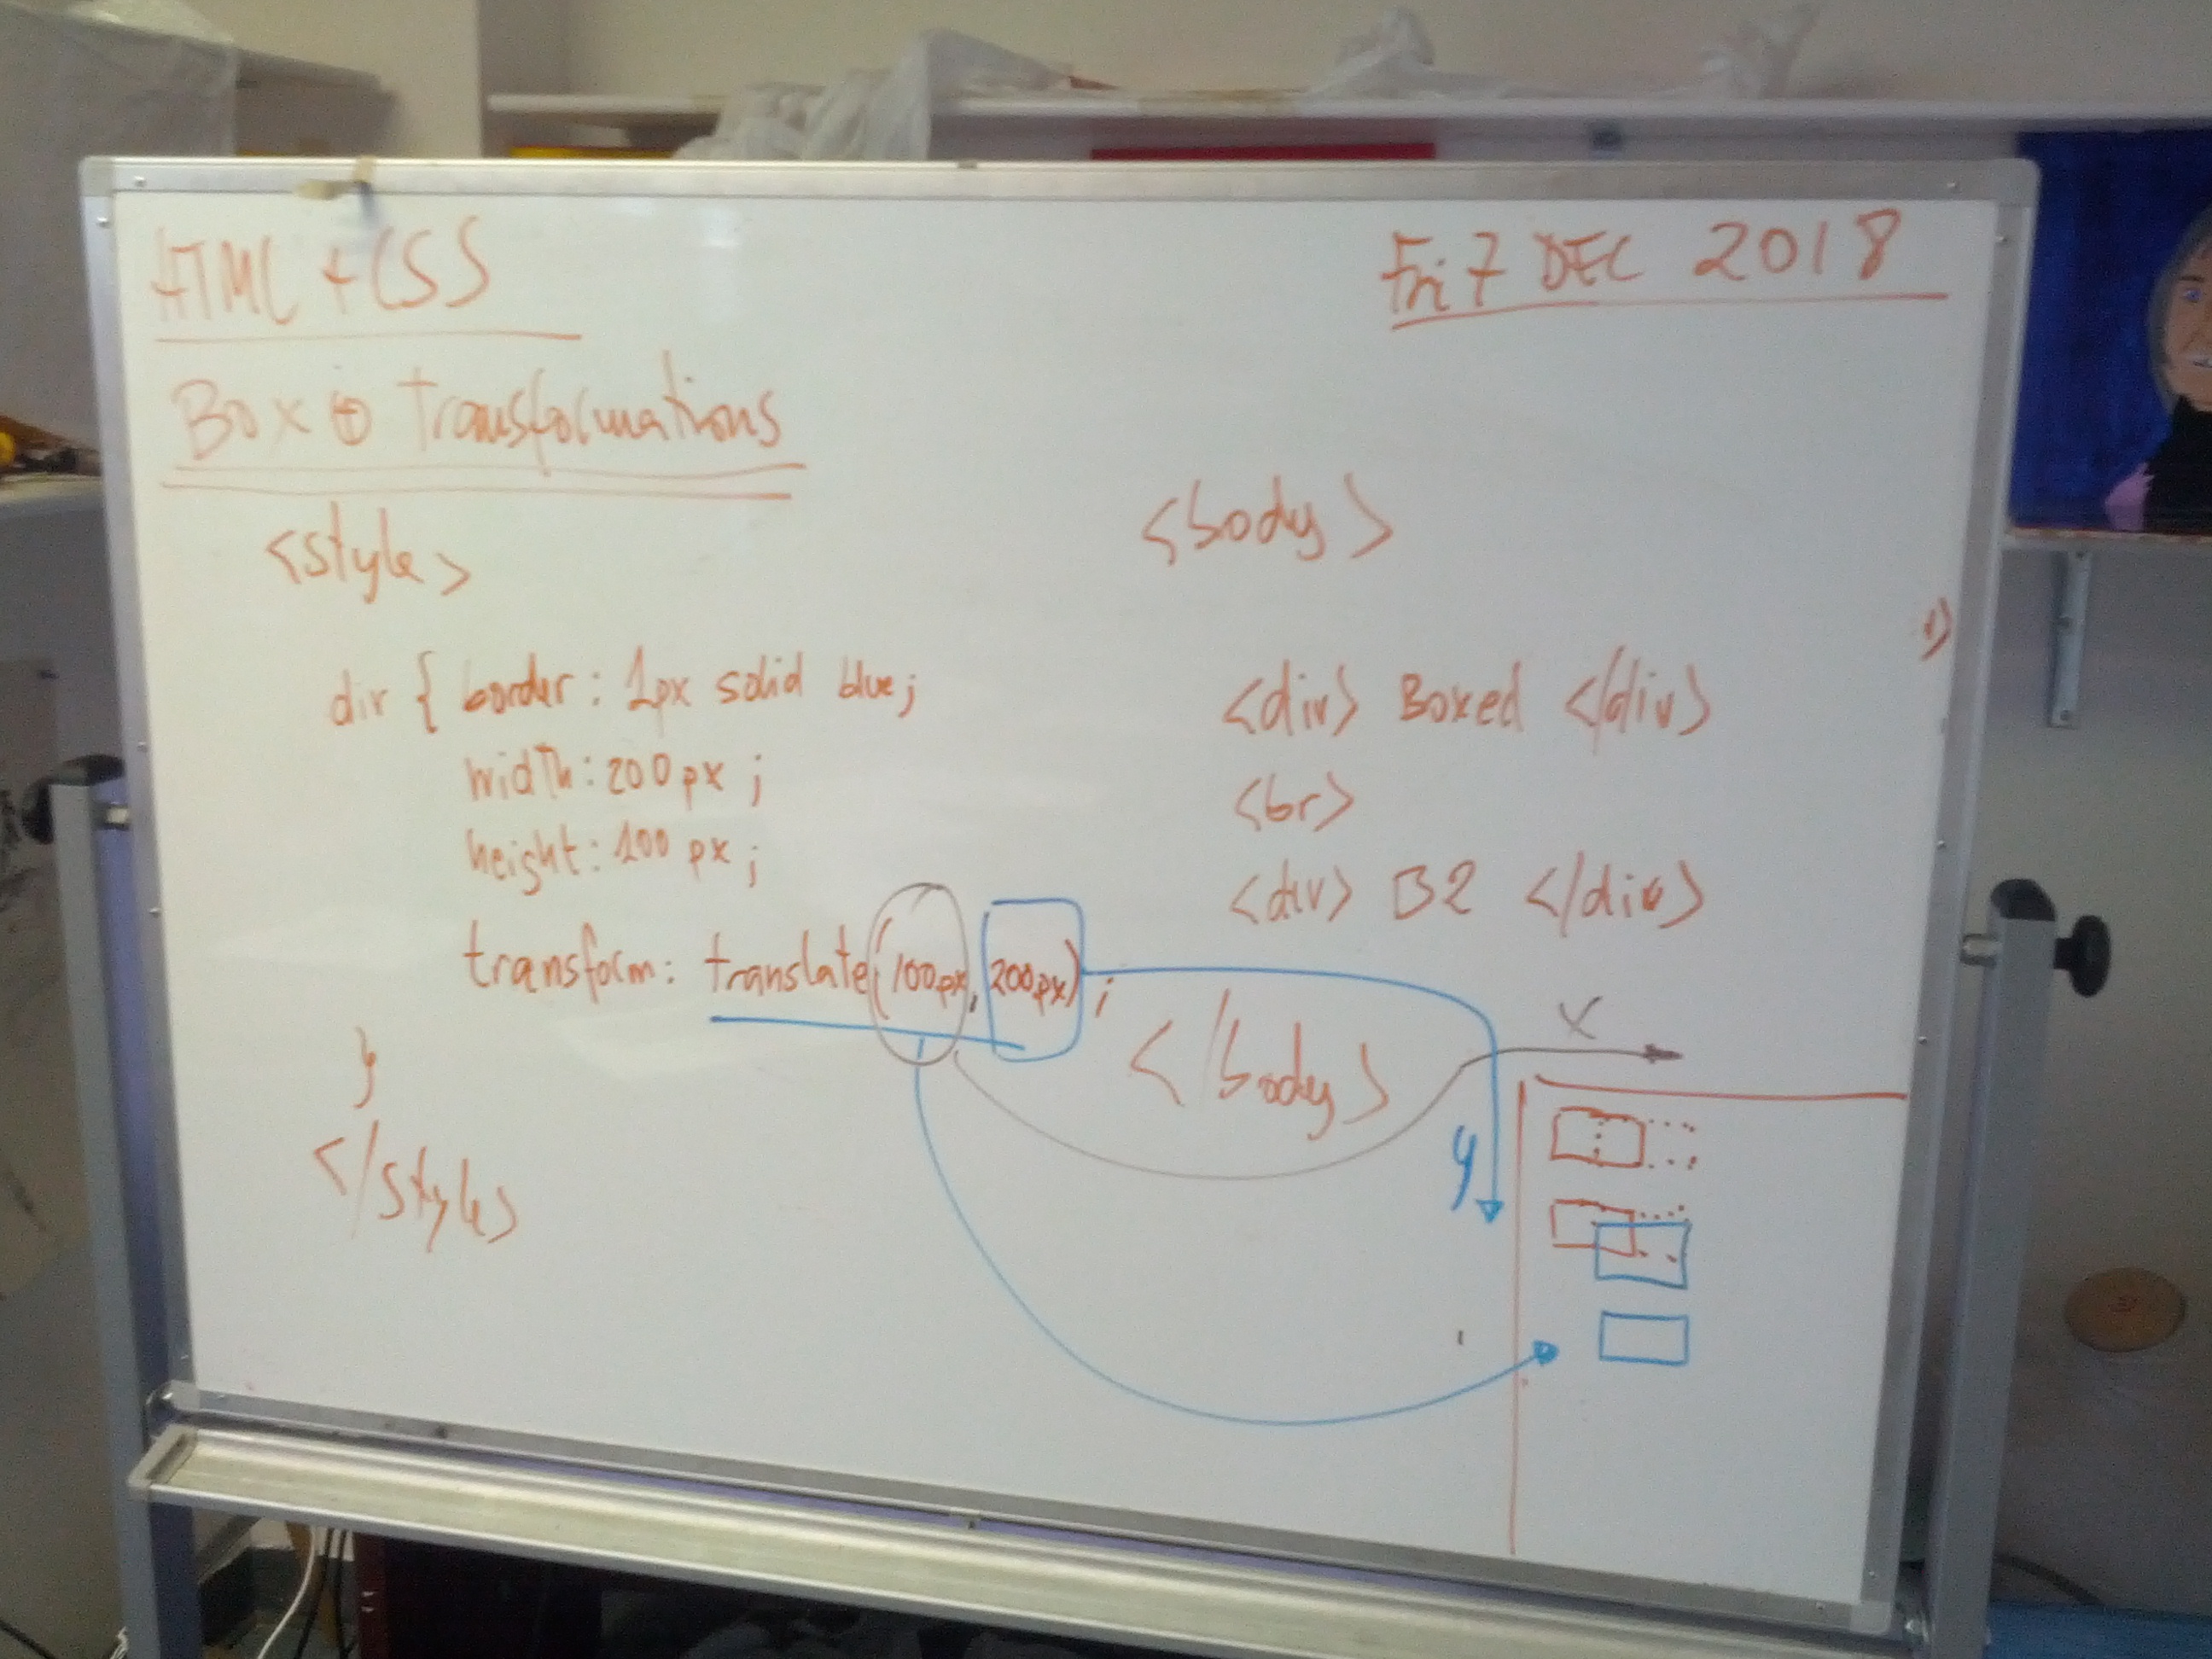 HTML + CSS
Fri 7 DEC 2018
Box ⊕ Transformations
<style>
div { border: 1px solid blue;
width: 200px;
height: 100px;
transform: translate(100px, 200px);
}
</style>
<body>
<div> Boxed </div>
<br>
<div> B2 </div>
</body>
x
y